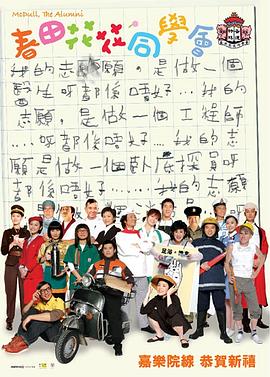 McDull, The Alumni
春田花花同學會
我的志願，是做一個
醫生呀都係唔好....我的
志願，是做一個工程師
....呀都係唔好....我的志
願是做一個臥底探員呀
都係唔好....我的志願
嘉樂院線 恭賀新禧